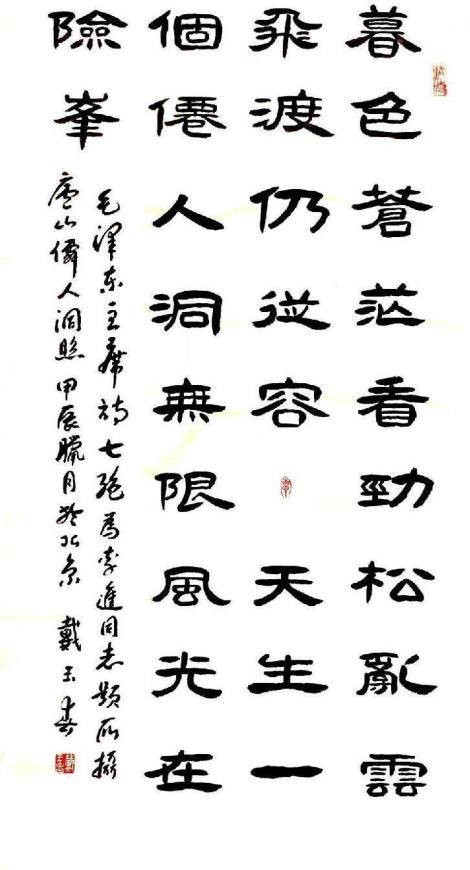 暮色蒼茫看勁松亂雲
飛渡仍從容天生一
個僊人洞無限風光在
險峯
毛澤东主席詩七絕為李進同志題所攝
廬山僊人洞照甲辰臘月於北京戴玉春